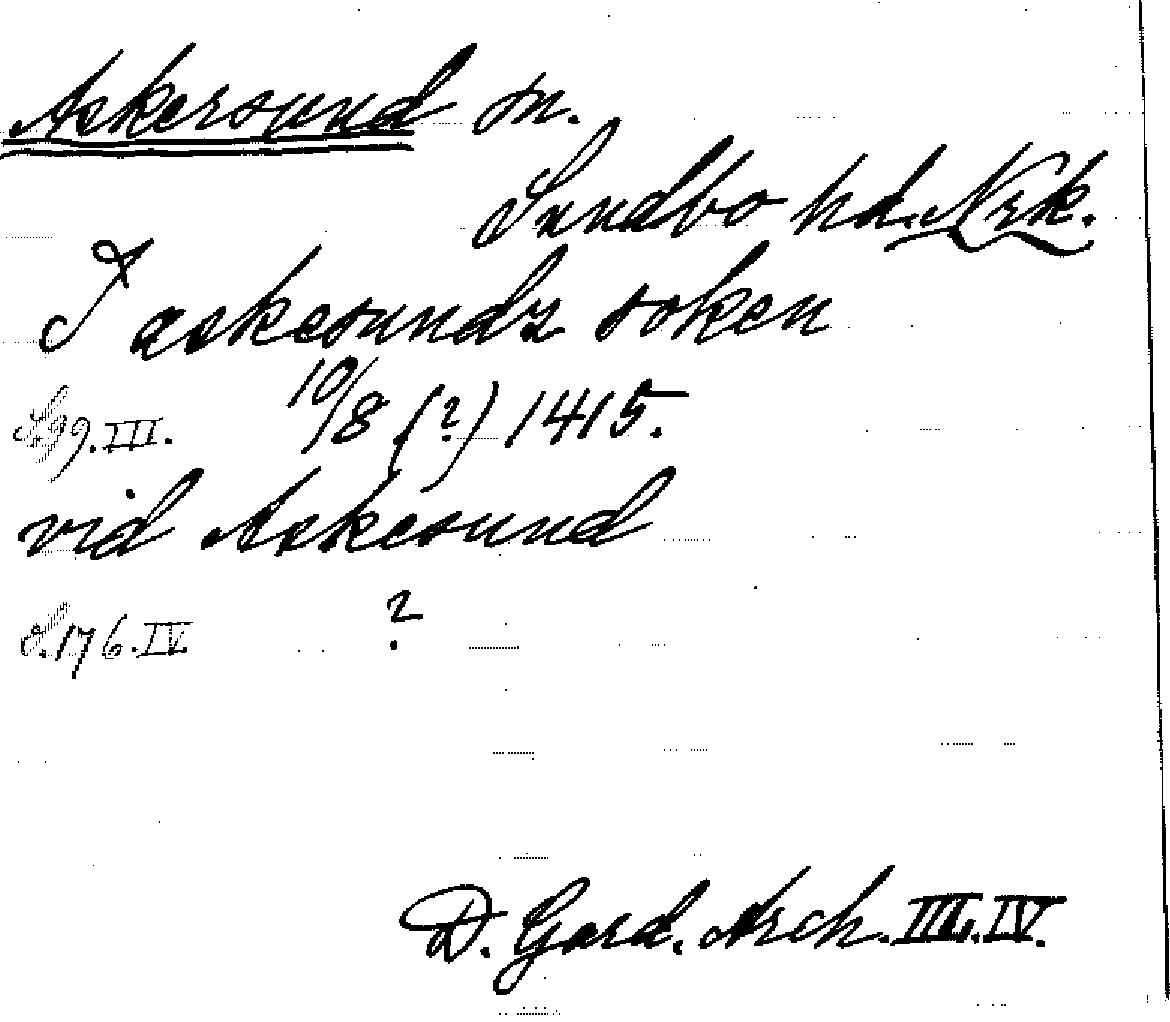 Askersund sn.
Sundbo hd. Nrk.
I askesundz soken
S. 99. III. 10/8 (?) 1415.
vid Askesund
S. 176. IV. ?
D. Gard. Arch. III. IV.